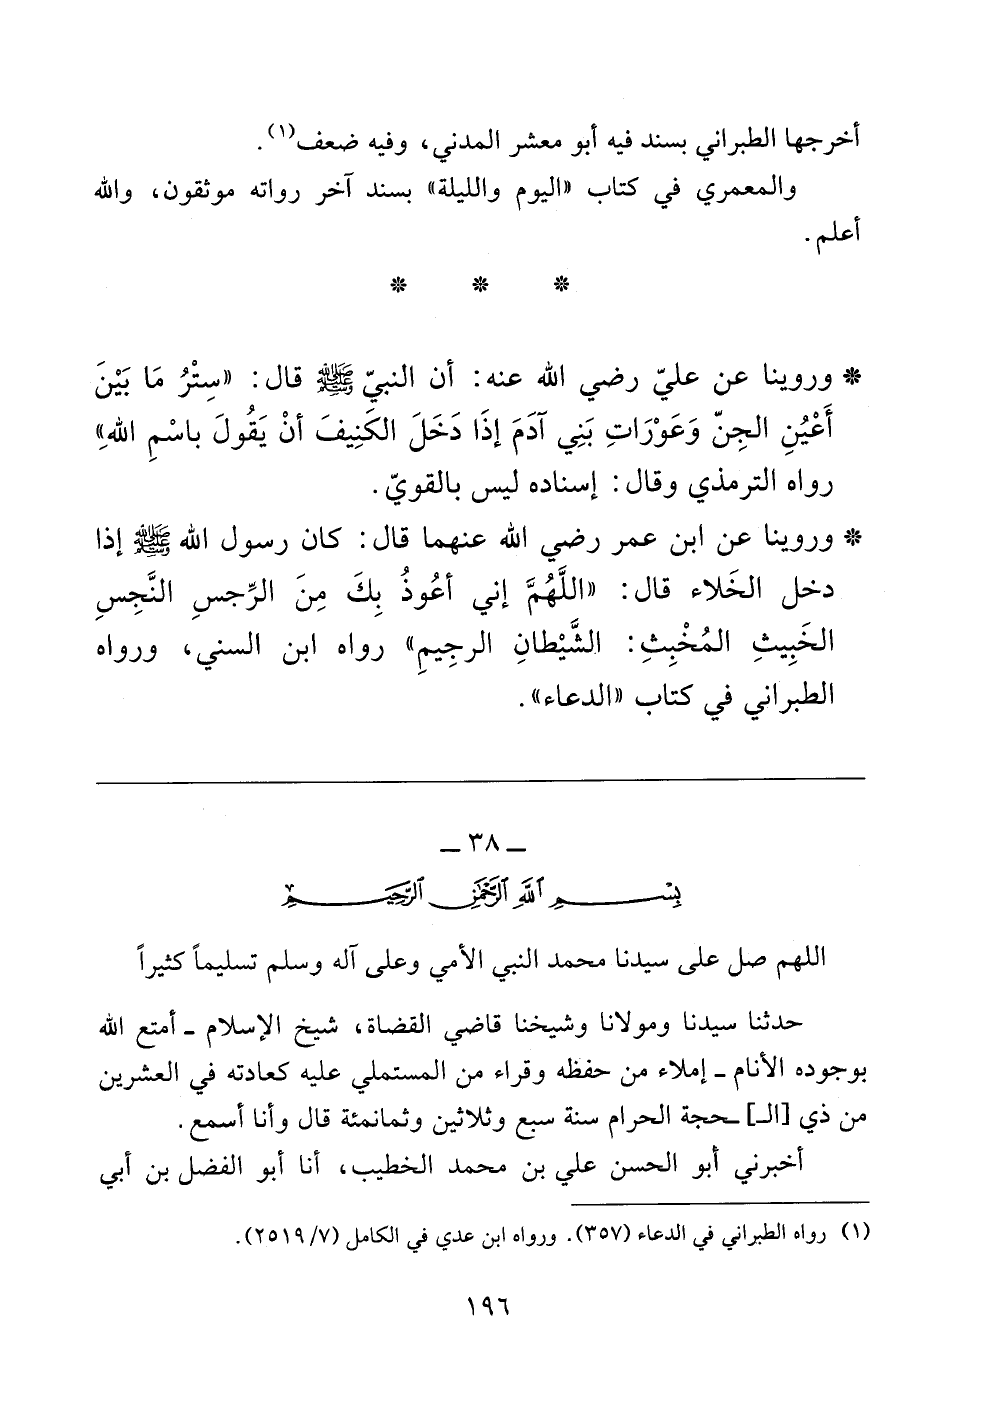 أخرجها الطبراني بسند فيه أبو معشر المدني، وفيه ضعف(١).
والمعمري في كتاب «اليوم والليلة» بسند آخر رواته موثقون، والله
أعلم.
* * *
* وروينا عن عليّ رضي الله عنه: أن النبيّ ﷺ قال: «سِتْرُ مَا بَيْنَ
أَعْيُنِ الجِنّ وَعَوْرَاتِ بَنِي آدَمَ إذَا دَخَلَ الكَنِيفَ أنْ يَقُولَ باسْمِ اللهِ»
رواه الترمذي وقال: إسناده ليس بالقويّ.
* وروينا عن ابن عمر رضي الله عنهما قال: كان رسول الله ﷺ إذا
دخل الخَلاء قال: «اللَّهُمَّ إني أعُوذُ بِكَ مِنَ الرِّجسِ النَّجِسِ
الخَبِيثِ المُخْبِثِ: الشَّيْطانِ الرجِيمِ» رواه ابن السني، ورواه
الطبراني في كتاب «الدعاء».
ـ ٣٨ ـ
بِسْمِ اللَّهِ الرَّحْمَٰنِ الرَّحِيمِ
اللهم صل على سيدنا محمد النبي الأمي وعلى آله وسلم تسليماً كثيراً
حدثنا سيدنا ومولانا وشيخنا قاضي القضاة، شيخ الإسلام ـ أمتع الله
بوجوده الأنام ـ إملاء من حفظه وقراء من المستملي عليه كعادته في العشرين
من ذي [الـ] ـحجة الحرام سنة سبع وثلاثين وثمانمئة قال وأنا أسمع.
أخبرني أبو الحسن علي بن محمد الخطيب، أنا أبو الفضل بن أبي
(١) رواه الطبراني في الدعاء (٣٥٧). ورواه ابن عدي في الكامل (٧/ ٢٥١٩).
١٩٦